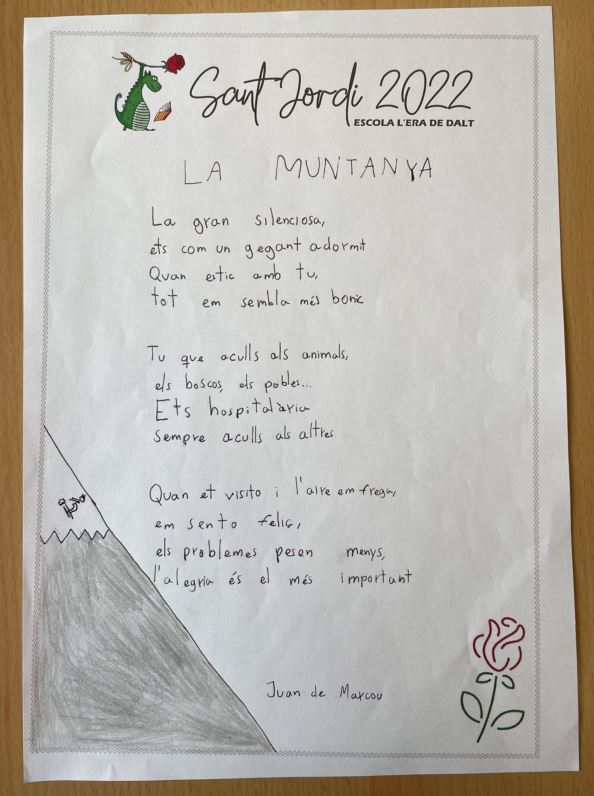 Sant Jordi 2022
ESCOLA L'ERA DE DALT
LA MUNTANYA
La gran silenciosa,
ets com un gegant adormit
Quan estic amb tu,
tot em sembla més bonic
Tu que aculls als animals,
els boscos, els pobles...
Ets hospitalària
sempre aculls als altres
Quan et visito i l'aire em frega,
em sento feliç,
els problemes pesen menys,
l'alegria és el més important
Juan de Marcou